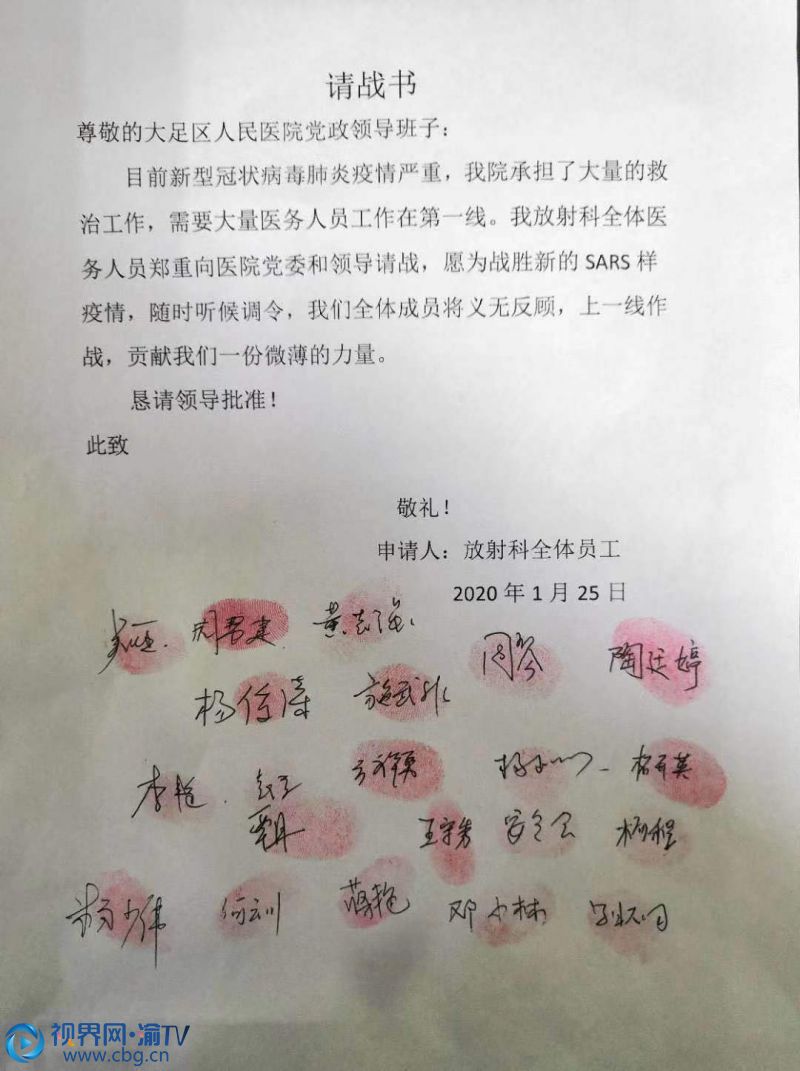 请战书
尊敬的大足区人民医院党政领导班子：
目前新型冠状病毒肺炎疫情严重，我院承担了大量的救
治工作，需要大量医务人员工作在第一线。我放射科全体医
务人员郑重向医院党委和领导请战，愿为战胜新的 SARS 样
疫情，随时听候调令，我们全体成员将义无反顾，上一线作
战，贡献我们一份微薄的力量。
恳请领导批准！
此致
敬礼！
申请人：放射科全体员工
2020 年 1 月 25 日
黄志强
周琴 陶廷婷
杨俊涛
李艳
王守芳 杨程
杨少伟 何云川 蒋艳 邓小林
视界网·渝TV
www.cbg.cn